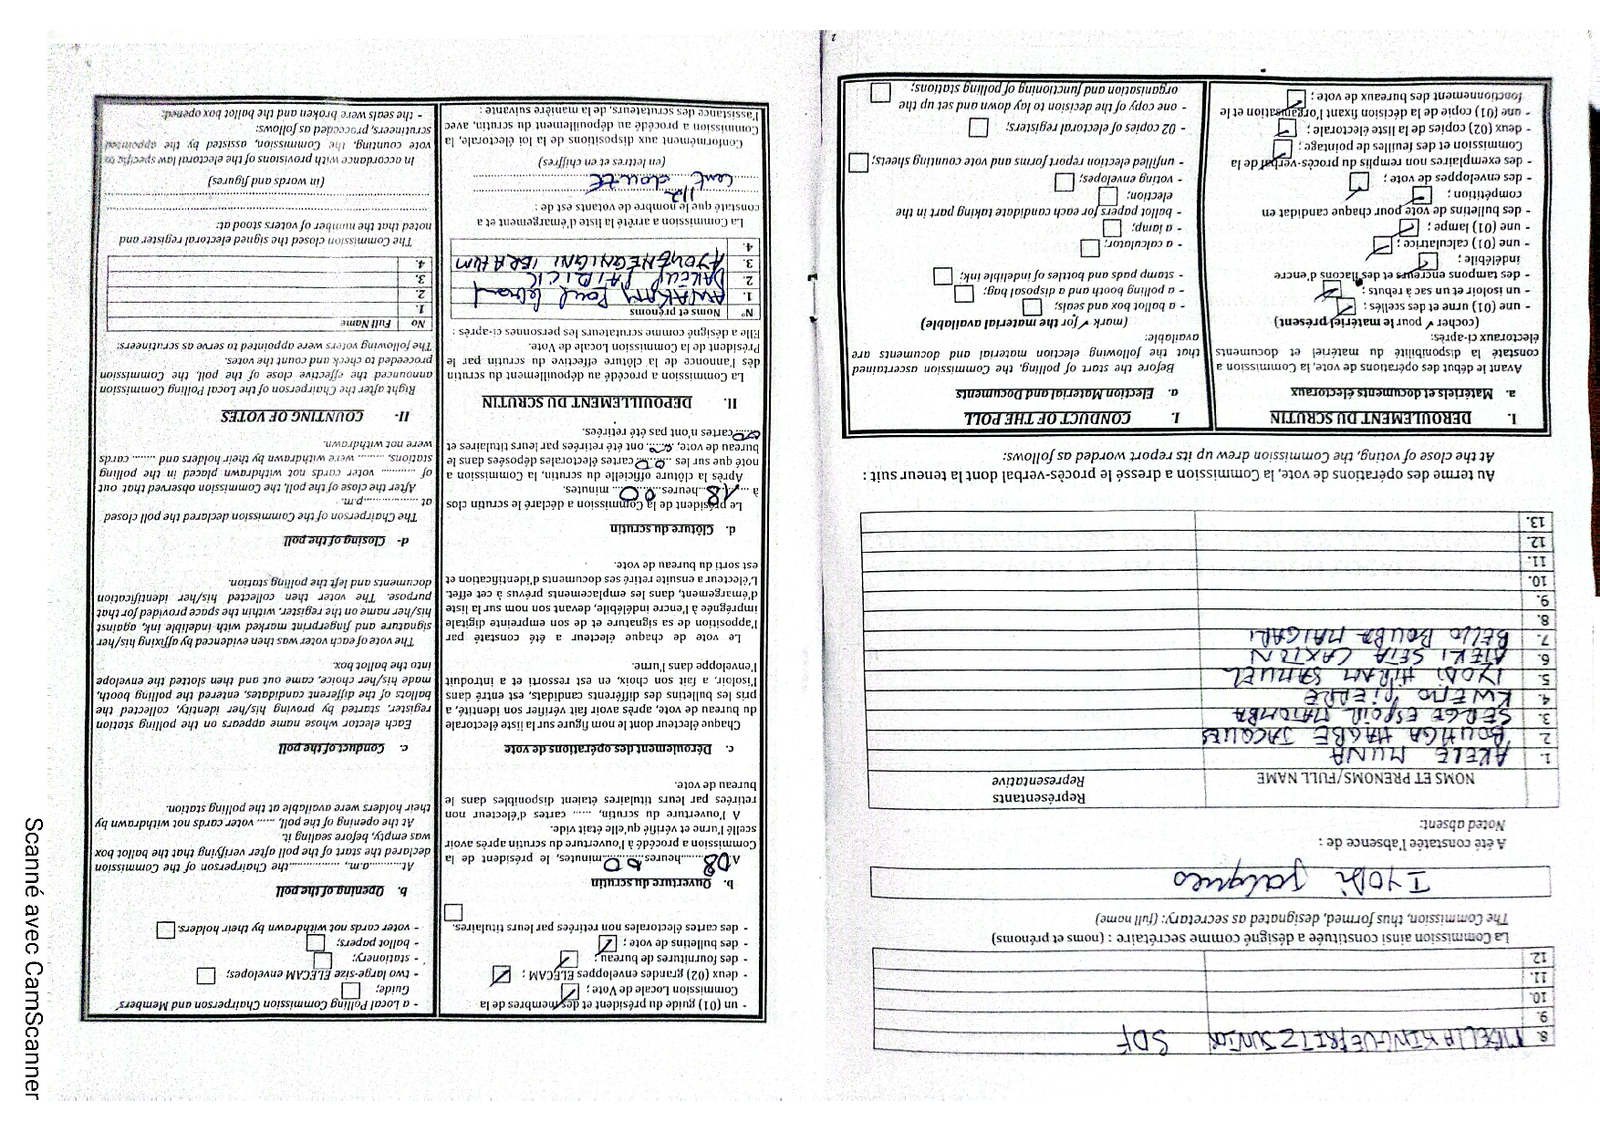 8. MBELLA KINGUE FRITZ JUNIOR SDF
9.
10.
11.
12.
La Commission ainsi constituée a désigné comme secrétaire : (noms et prénoms)
The Commission, thus formed, designated as secretary: (full name)
IYODI Jacques
A été constatée l'absence de :
Noted absent:
NOMS ET PRENOMS/FULL NAME
Représentants
Representative
1. AKERE MUNA
2. BOUHGA HAGBE JACQUES
3. SERGE ESPOIR MATOMBA
4. KWEMO PIERRE
5. IYODI HIRAM SAMUEL
6. ATEKI SETA CAXTON
7. BELLO BOUBA MAIGARI
8.
9.
10.
11.
12.
13.
Au terme des opérations de vote, la Commission a dressé le procès-verbal dont la teneur suit :
At the close of voting, the Commission drew up its report worded as follows:
I. DEROULEMENT DU SCRUTIN
a. Matériels et documents électoraux
Avant le début des opérations de vote, la Commission a
constaté la disponibilité du matériel et documents
électoraux ci-après:
(cocher ✓ pour le matériel présent)
- une (01) urne et des scellés;
- un isoloir et un sac à rebuts ;
- des tampons encreurs et des flacons d'encre
indélébile;
- une (01) calculatrice ;
- une (01) lampe ;
- des bulletins de vote pour chaque candidat en
compétition ;
- des enveloppes de vote ;
- des exemplaires non remplis du procès-verbal de la
Commission et des feuilles de pointage ;
- deux (02) copies de la liste électorale ;
- une (01) copie de la décision fixant l'organisation et le
fonctionnement des bureaux de vote ;
I. CONDUCT OF THE POLL
a. Election Material and Documents
Before the start of polling, the Commission ascertained
that the following election material and documents are
available:
(mark ✓ for the material available)
- a ballot box and seals;
- a polling booth and a disposal bag;
- stamp pads and bottles of indelible ink;
- a calculator;
- a lamp;
- ballot papers for each candidate taking part in the
election;
- voting envelopes;
- unfilled election report forms and vote counting sheets;
- 02 copies of electoral registers;
- one copy of the decision to lay down and set up the
organisation and functioning of polling stations;
- un (01) guide du président et des membres de la
Commission Locale de Vote ;
- deux (02) grandes enveloppes ELECAM ;
- des fournitures de bureau ;
- des bulletins de vote ;
- des cartes électorales non retirées par leurs titulaires.
b. Ouverture du scrutin
A 08 heures 00 minutes, le président de la
Commission a procédé à l'ouverture du scrutin après avoir
scellé l'urne et vérifié qu'elle était vide.
A l'ouverture du scrutin, ...... cartes d'électeur non
retirées par leurs titulaires étaient disponibles dans le
bureau de vote.
c. Déroulement des opérations de vote
Chaque électeur dont le nom figure sur la liste électorale
du bureau de vote, après avoir fait vérifier son identité, a
pris les bulletins des différents candidats, est entré dans
l'isoloir, a fait son choix, en est ressorti et a introduit
l'enveloppe dans l'urne.
Le vote de chaque électeur a été constaté par
l'apposition de sa signature et de son empreinte digitale
imprégnée à l'encre indélébile, devant son nom sur la liste
d'émargement, dans les emplacements prévus à cet effet.
L'électeur a ensuite retiré ses documents d'identification et
est sorti du bureau de vote.
d. Clôture du scrutin
Le président de la Commission a déclaré le scrutin clos
à 18 heures 00 minutes.
Après la clôture officielle du scrutin, la Commission a
noté que sur les 00 cartes électorales déposées dans le
bureau de vote, 00 ont été retirées par leurs titulaires et
00 cartes n'ont pas été retirées.
II. DEPOUILLEMENT DU SCRUTIN
La Commission a procédé au dépouillement du scrutin
dès l'annonce de la clôture effective du scrutin par le
Président de la Commission Locale de Vote.
Elle a désigné comme scrutateurs les personnes ci-après :
N° Noms et prénoms
1. ANAKAM Paul
2. DAKEU PATRICK
3. IBRAHIM
4.
La Commission a arrêté la liste d'émargement et a
constaté que le nombre de votants est de :
112
cent douze
(en lettres et en chiffres)
Conformément aux dispositions de la loi électorale, la
Commission a procédé au dépouillement du scrutin, avec
l'assistance des scrutateurs, de la manière suivante :
- a Local Polling Commission Chairperson and Members'
Guide;
- two large-size ELECAM envelopes;
- stationery;
- ballot papers;
- voter cards not withdrawn by their holders.
b. Opening of the poll
At..........a.m, ..............the Chairperson of the Commission
declared the start of the poll after verifying that the ballot box
was empty, before sealing it.
At the opening of the poll, ...... voter cards not withdrawn by
their holders were available at the polling station.
c. Conduct of the poll
Each elector whose name appears on the polling station
register, started by proving his/her identity, collected the
ballots of the different candidates, entered the polling booth,
made his/her choice, came out and then slotted the envelope
into the ballot box.
The vote of each voter was then evidenced by affixing his/her
signature and fingerprint marked with indelible ink, against
his/her name on the register, within the space provided for that
purpose. The voter then collected his/her identification
documents and left the polling station.
d- Closing of the poll
The Chairperson of the Commission declared the poll closed
at ..................p.m.
After the close of the poll, the Commission observed that out
of .......... voter cards not withdrawn placed in the polling
stations, ........ were withdrawn by their holders and ........ cards
were not withdrawn.
II- COUNTING OF VOTES
Right after the Chairperson of the Local Polling Commission
announced the effective close of the poll, the Commission
proceeded to check and count the votes.
The following voters were appointed to serve as scrutineers:
No Full Name
1.
2.
3.
4.
The Commission closed the signed electoral register and
noted that the number of voters stood at:
(in words and figures)
In accordance with provisions of the electoral law specific to
vote counting, the Commission, assisted by the appointed
scrutineers, proceeded as follows:
- the seals were broken and the ballot box opened;
Scanné avec CamScanner